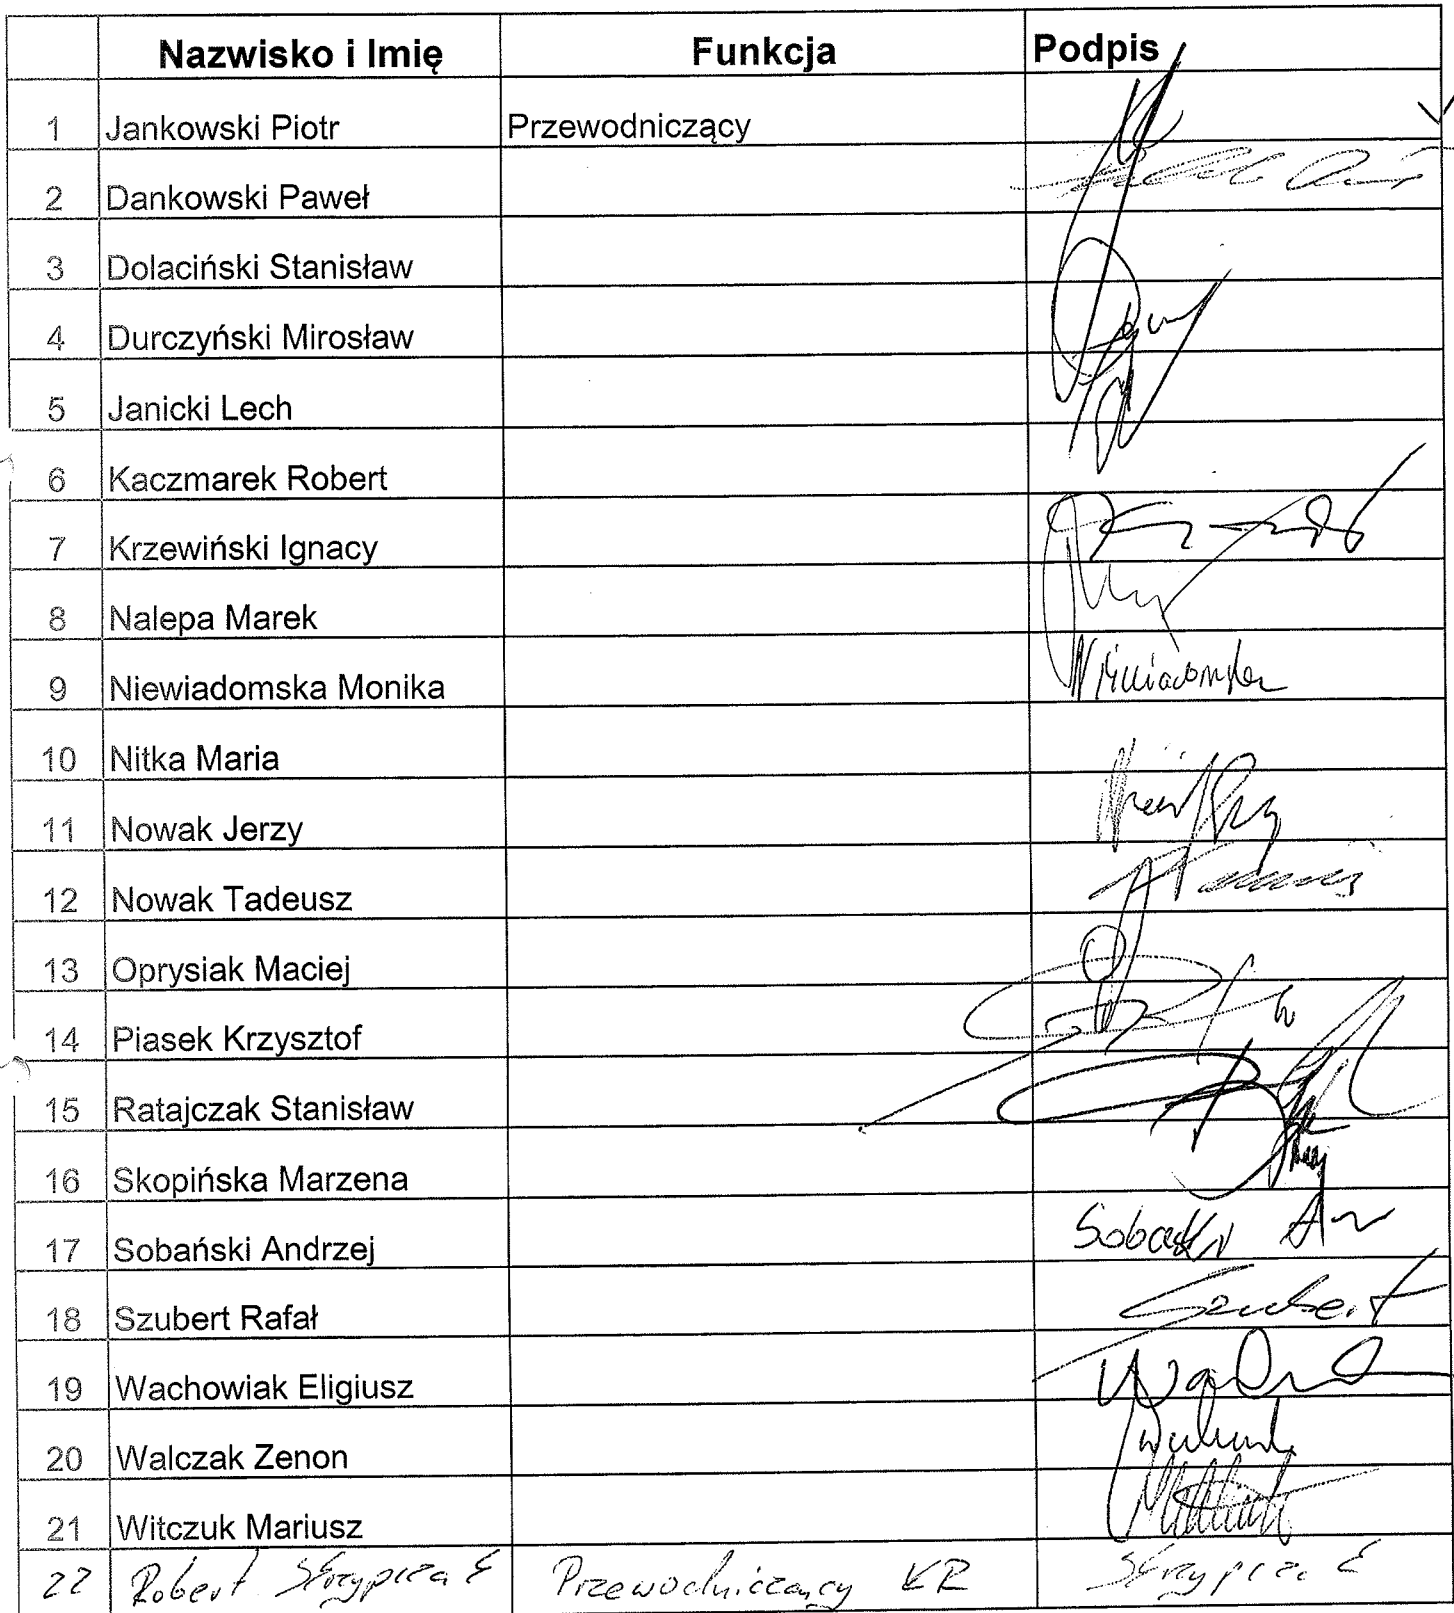 Nazwisko i Imię Funkcja Podpis
1 Jankowski Piotr Przewodniczący
2 Dankowski Paweł
3 Dolaciński Stanisław
4 Durczyński Mirosław
5 Janicki Lech
6 Kaczmarek Robert
7 Krzewiński Ignacy
8 Nalepa Marek
9 Niewiadomska Monika Niewiadomska
10 Nitka Maria
11 Nowak Jerzy
12 Nowak Tadeusz
13 Oprysiak Maciej
14 Piasek Krzysztof
15 Ratajczak Stanisław
16 Skopińska Marzena
17 Sobański Andrzej
18 Szubert Rafał Szubert
19 Wachowiak Eligiusz
20 Walczak Zenon
21 Witczuk Mariusz
22 Robert Skrzypczak Przewodniczący KR Skrzypczak